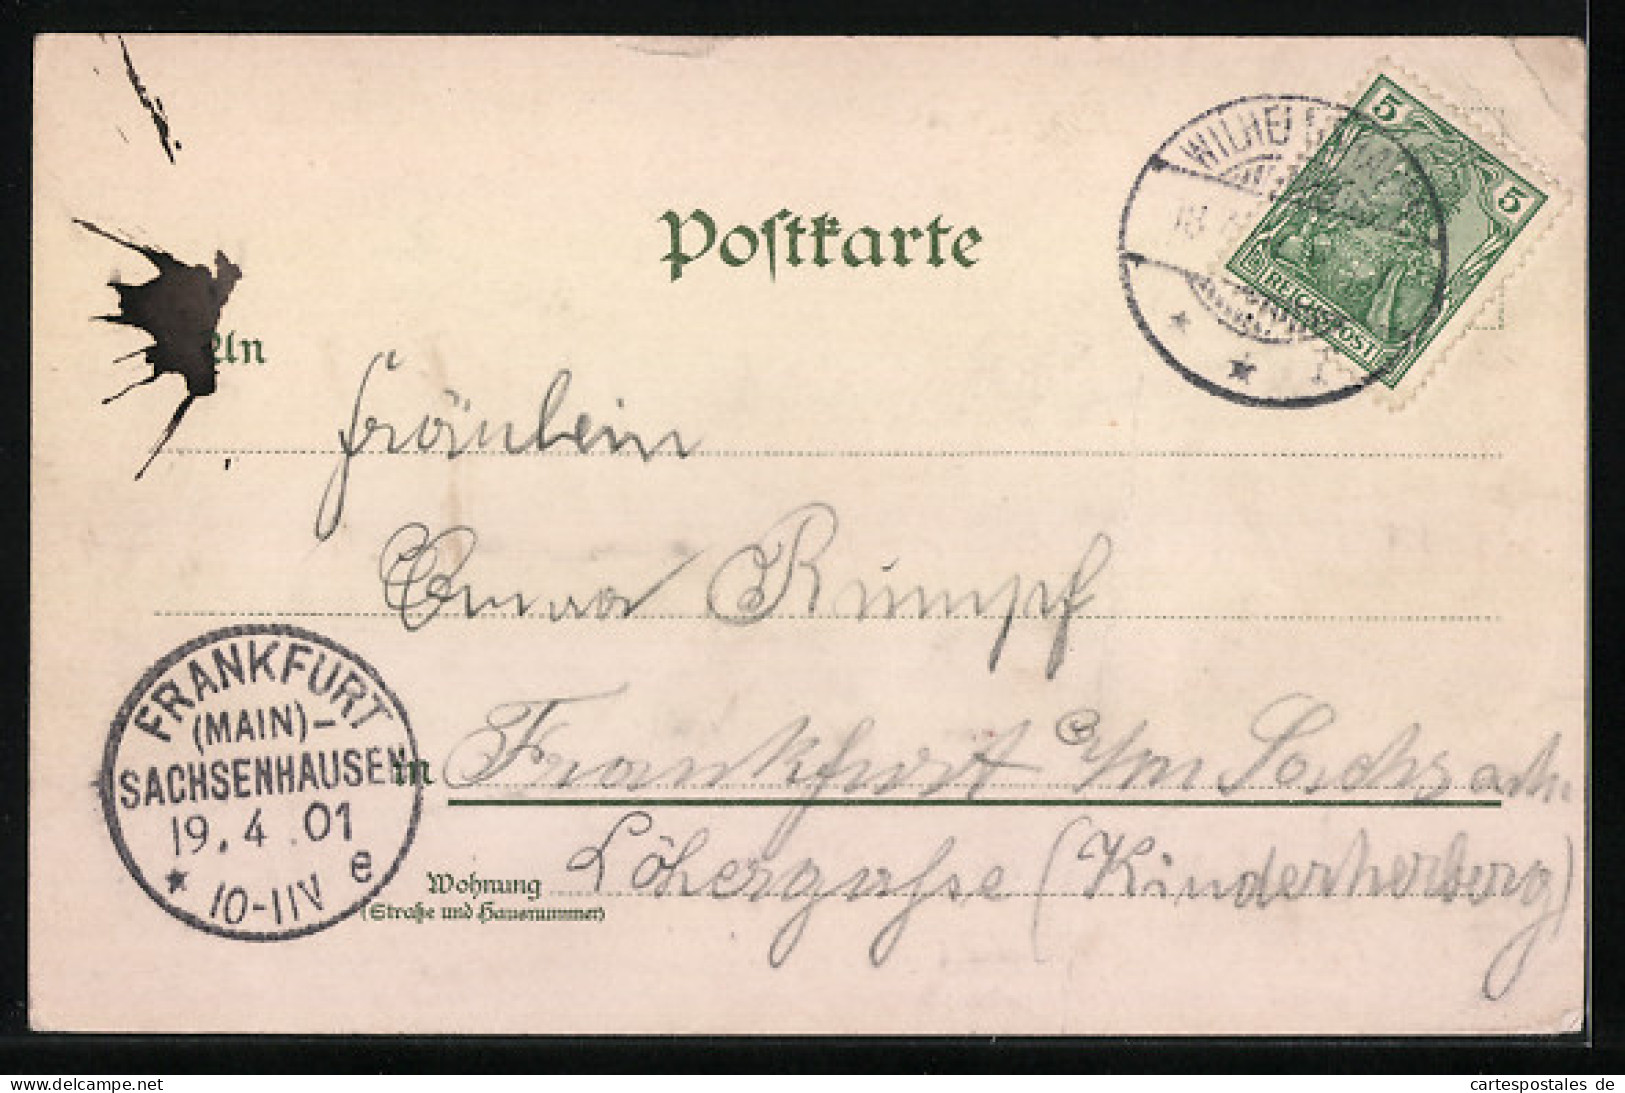 Postkarte
5
5
REICHSPOST
18
An
Fräulein
Emma Rumpf
FRANKFURT
(MAIN)-
SACHSENHAUSEN
19.4.01
10-11V e
in Frankfurt a/m Sachsenh.
Wohnung Löhergaße (Kinderherberg)
(Straße und Hausnummer)
http://www.ansichtskarten-center.de/
cartespostales de